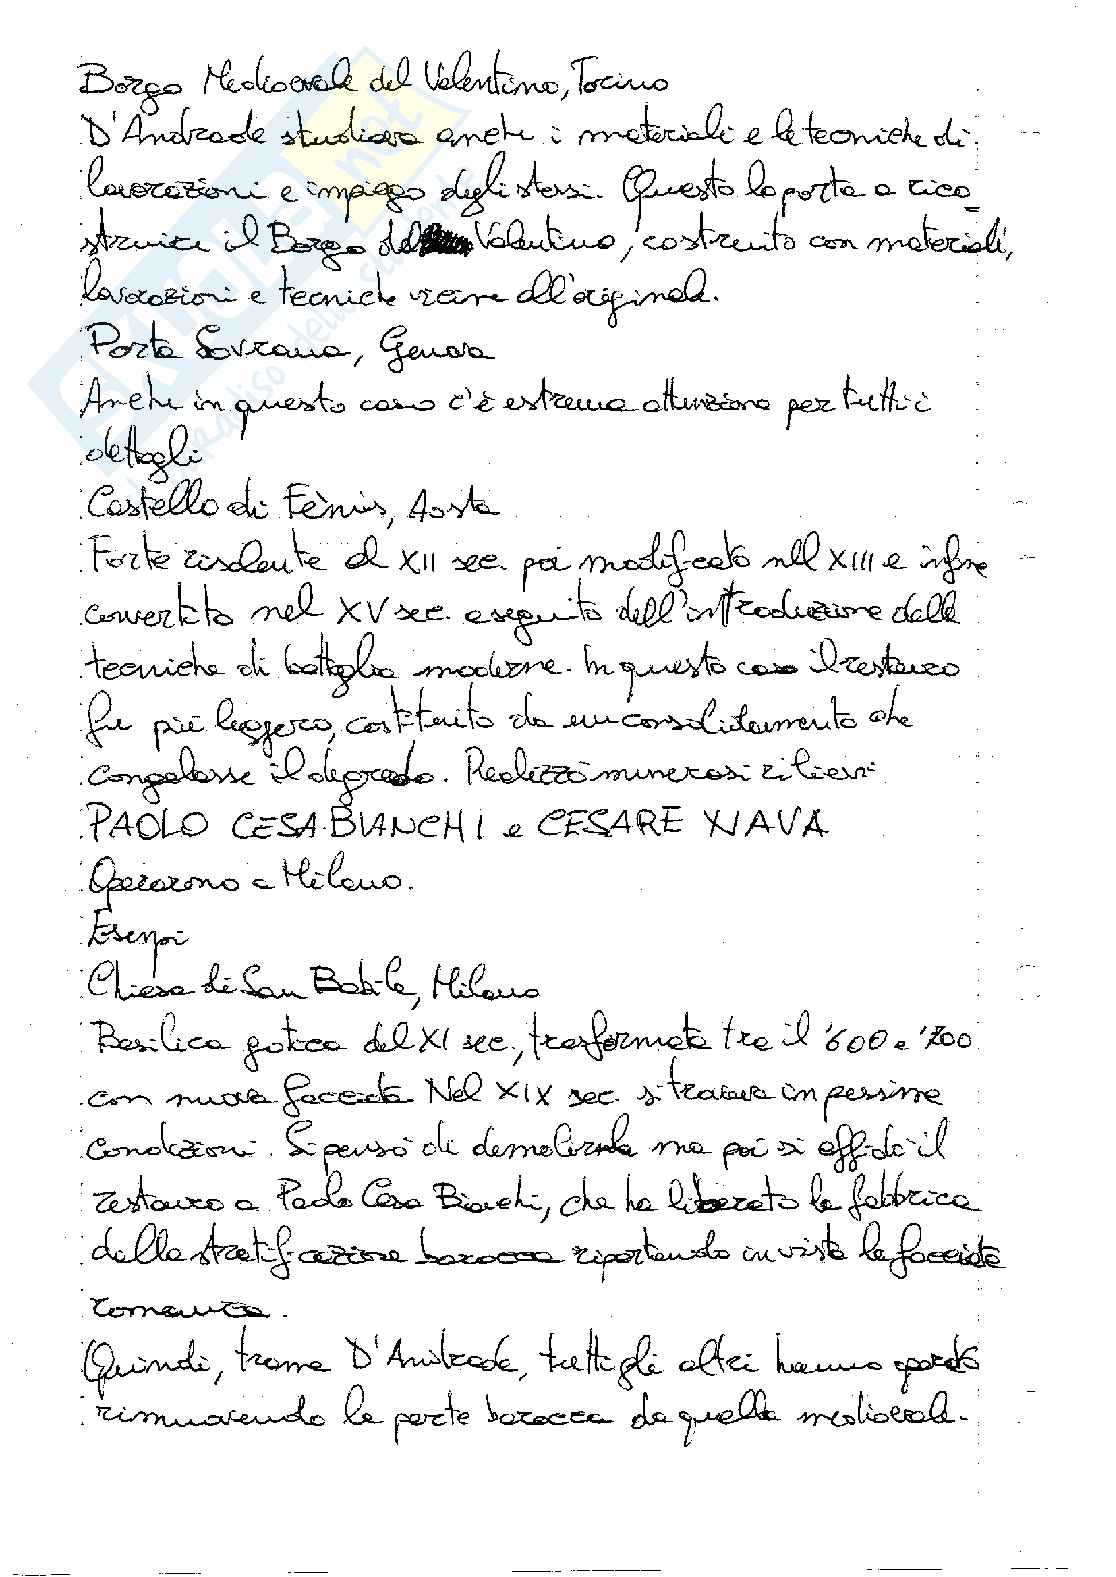 Borgo Medioevale del Valentino, Torino
D'Andrade studiava anche i materiali e le tecniche di
lavorazioni e impiego degli stessi. Questo lo porta a rico_
struire il Borgo del Valentino, costruito con materiali,
lavorazioni e tecniche vicine all'originale.
Porta Sovrana, Genova
Anche in questo caso c'è estrema attenzione per tutti i
dettagli
Castello di Fènis, Aosta
Forte risalente al XII sec. poi modificato nel XIII e infine
convertito nel XV sec. a seguito dell'introduzione delle
tecniche di battaglia moderne. In questo caso il restauro
fu più leggero, costituito da un consolidamento che
congelasse il degrado. Realizzò numerosi rilievi
PAOLO CESA BIANCHI e CESARE NAVA
Operarono a Milano.
Esempi
Chiesa di San Babila, Milano
Basilica gotica del XI sec., trasformata tra il '600 e '700
con nuova facciata Nel XIX sec. si trovava in pessime
condizioni. Si pensò di demolirla ma poi si affidò il
restauro a Paolo Cesa Bianchi, che ha liberato la fabbrica
dalla stratificazione barocca riportando in vista la facciata
romanica.
Quindi, tranne D'Andrade, tutti gli altri hanno operato
rimuovendo la parte barocca da quella medioevale.
SKUOLA.net
il paradiso dello studente